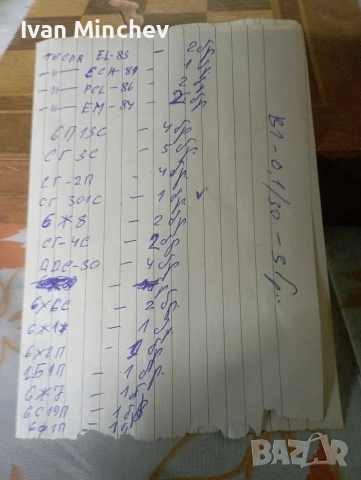 Ivan Minchev
TESLA EL-83 - 2 бр.
-"- ECH-81 - 1 бр.
-"- PCL-86 - 2 бр.
-"- EM-84 - 2 бр.
6П13С - 4 бр.
СГ 3С - 5 бр.
СГ-2П - 4 бр.
СГ 301С - 1 бр. ✓
6Ж8 - 2 бр.
СГ-4С - 2 бр.
- 4 бр.
6Х6С - 2 бр.
6Ж1 - 1 бр.
6Х2П - бр.
1Б1П - 1 бр.
6Ж7 - 1 бр.
6С19П - 1 бр.
6Ф1П - 1 бр.
В1-0,1/30 - 3 бр.
BAZAR